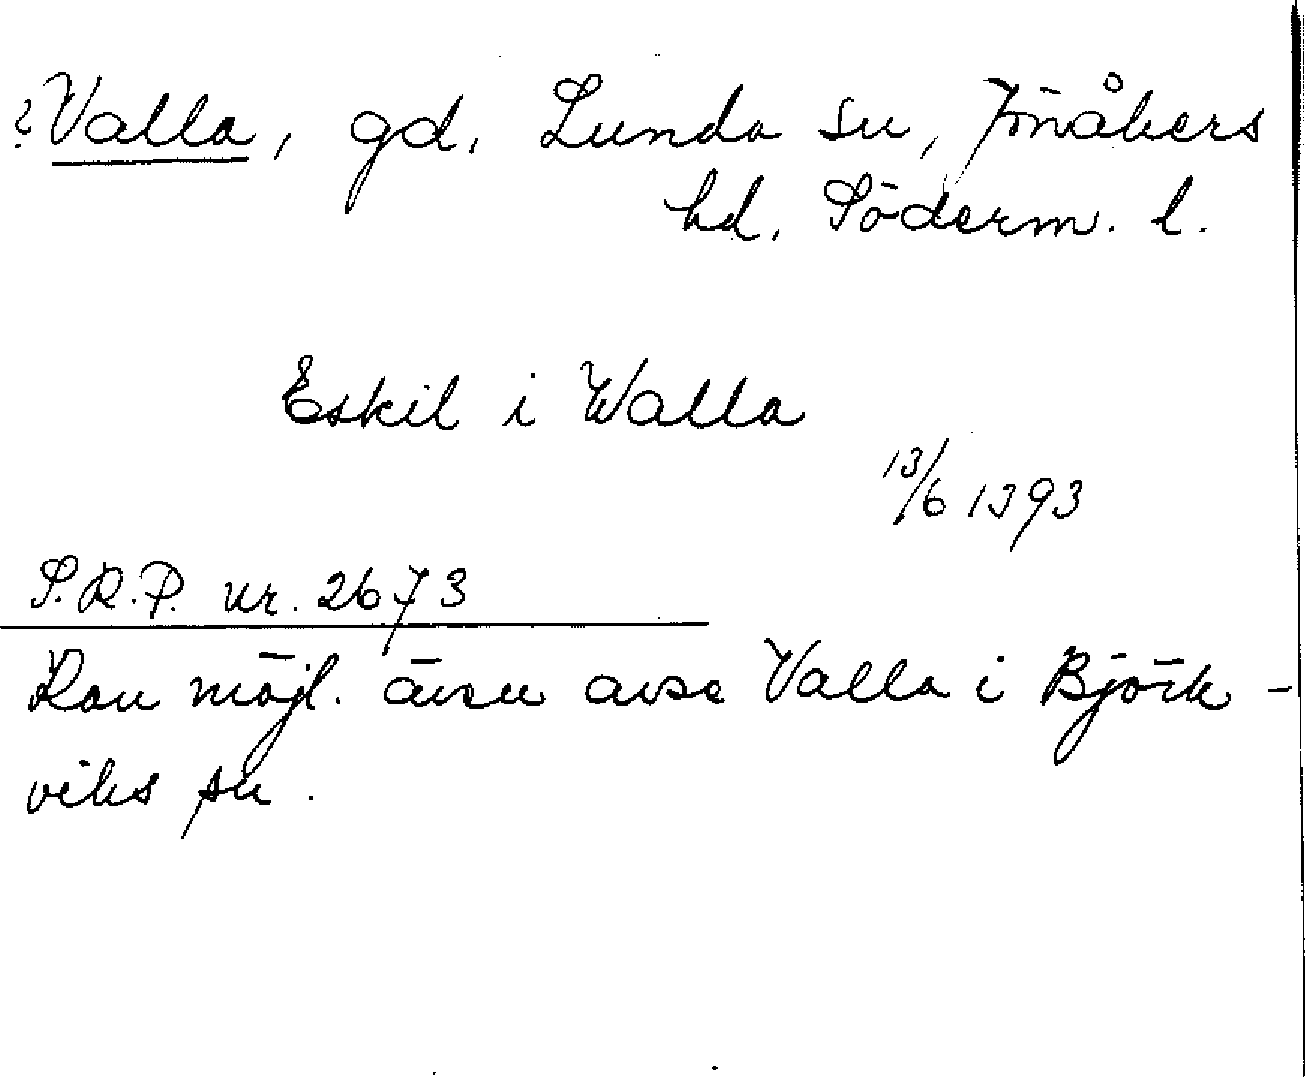 ?Valla, gd, Lunda sn, Jönåkers
hd, Söderm. l.
Eskil i Walla
13/6 1393
S.R.P. nr. 2673
Kan möjl. även avse Valla i Björk-
viks sn.